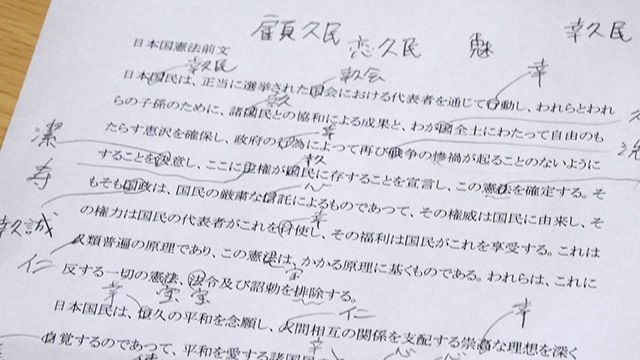 顧久民 恋久民 魅 幸久民
日本国憲法前文
敦久民 敦会 幸
日本国民は、正当に選挙された国会における代表者を通じて行動し、われらとわれ
らの子孫のために、諸国民との協和による成果と、わが国全土にわたつて自由のも
たらす恵沢を確保し、政府の行為によつて再び戦争の惨禍が起ることのないように
潔
することを決意し、ここに主権が国民に存することを宣言し、この憲法を確定する。そ
寿
もそも国政は、国民の厳粛な信託によるものであつて、その権威は国民に由来し、そ
誠
の権力は国民の代表者がこれを行使し、その福利は国民がこれを享受する。これは
仁
人類普遍の原理であり、この憲法は、かかる原理に基くものである。われらは、これに
反する一切の憲法、法令及び詔勅を排除する。
幸 宝 宝 仁 幸
日本国民は、恒久の平和を念願し、人間相互の関係を支配する崇高な理想を深く
自覚するのであつて、平和を愛する諸国民